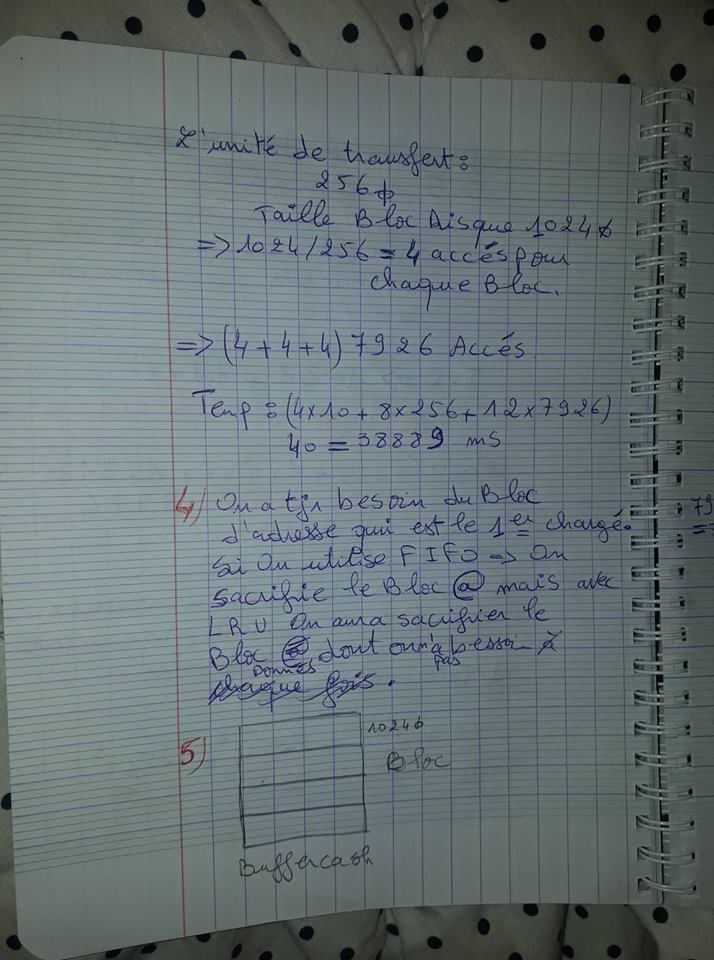 L'unité de transfert :
256 ϕ
Taille Bloc Disque 1024 ϕ
=> 1024/256 = 4 accés pour
chaque Bloc.
=> (4 + 4 + 4) 7926 Accés
Temp : (4x10 + 8x256 + 12x7926)
40 = 38889 mS
4) On a tjr besoin du Bloc
d'adresse qui est le 1er chargé.
Si On utilise FIFO => On
sacrifie le Bloc @ mais avec
LRU On aura sacrifier le
Bloc @ dont on n'a besoin
Données pas
chaque fois.
5)
1024 ϕ
Bloc
Buffercash
79
=>